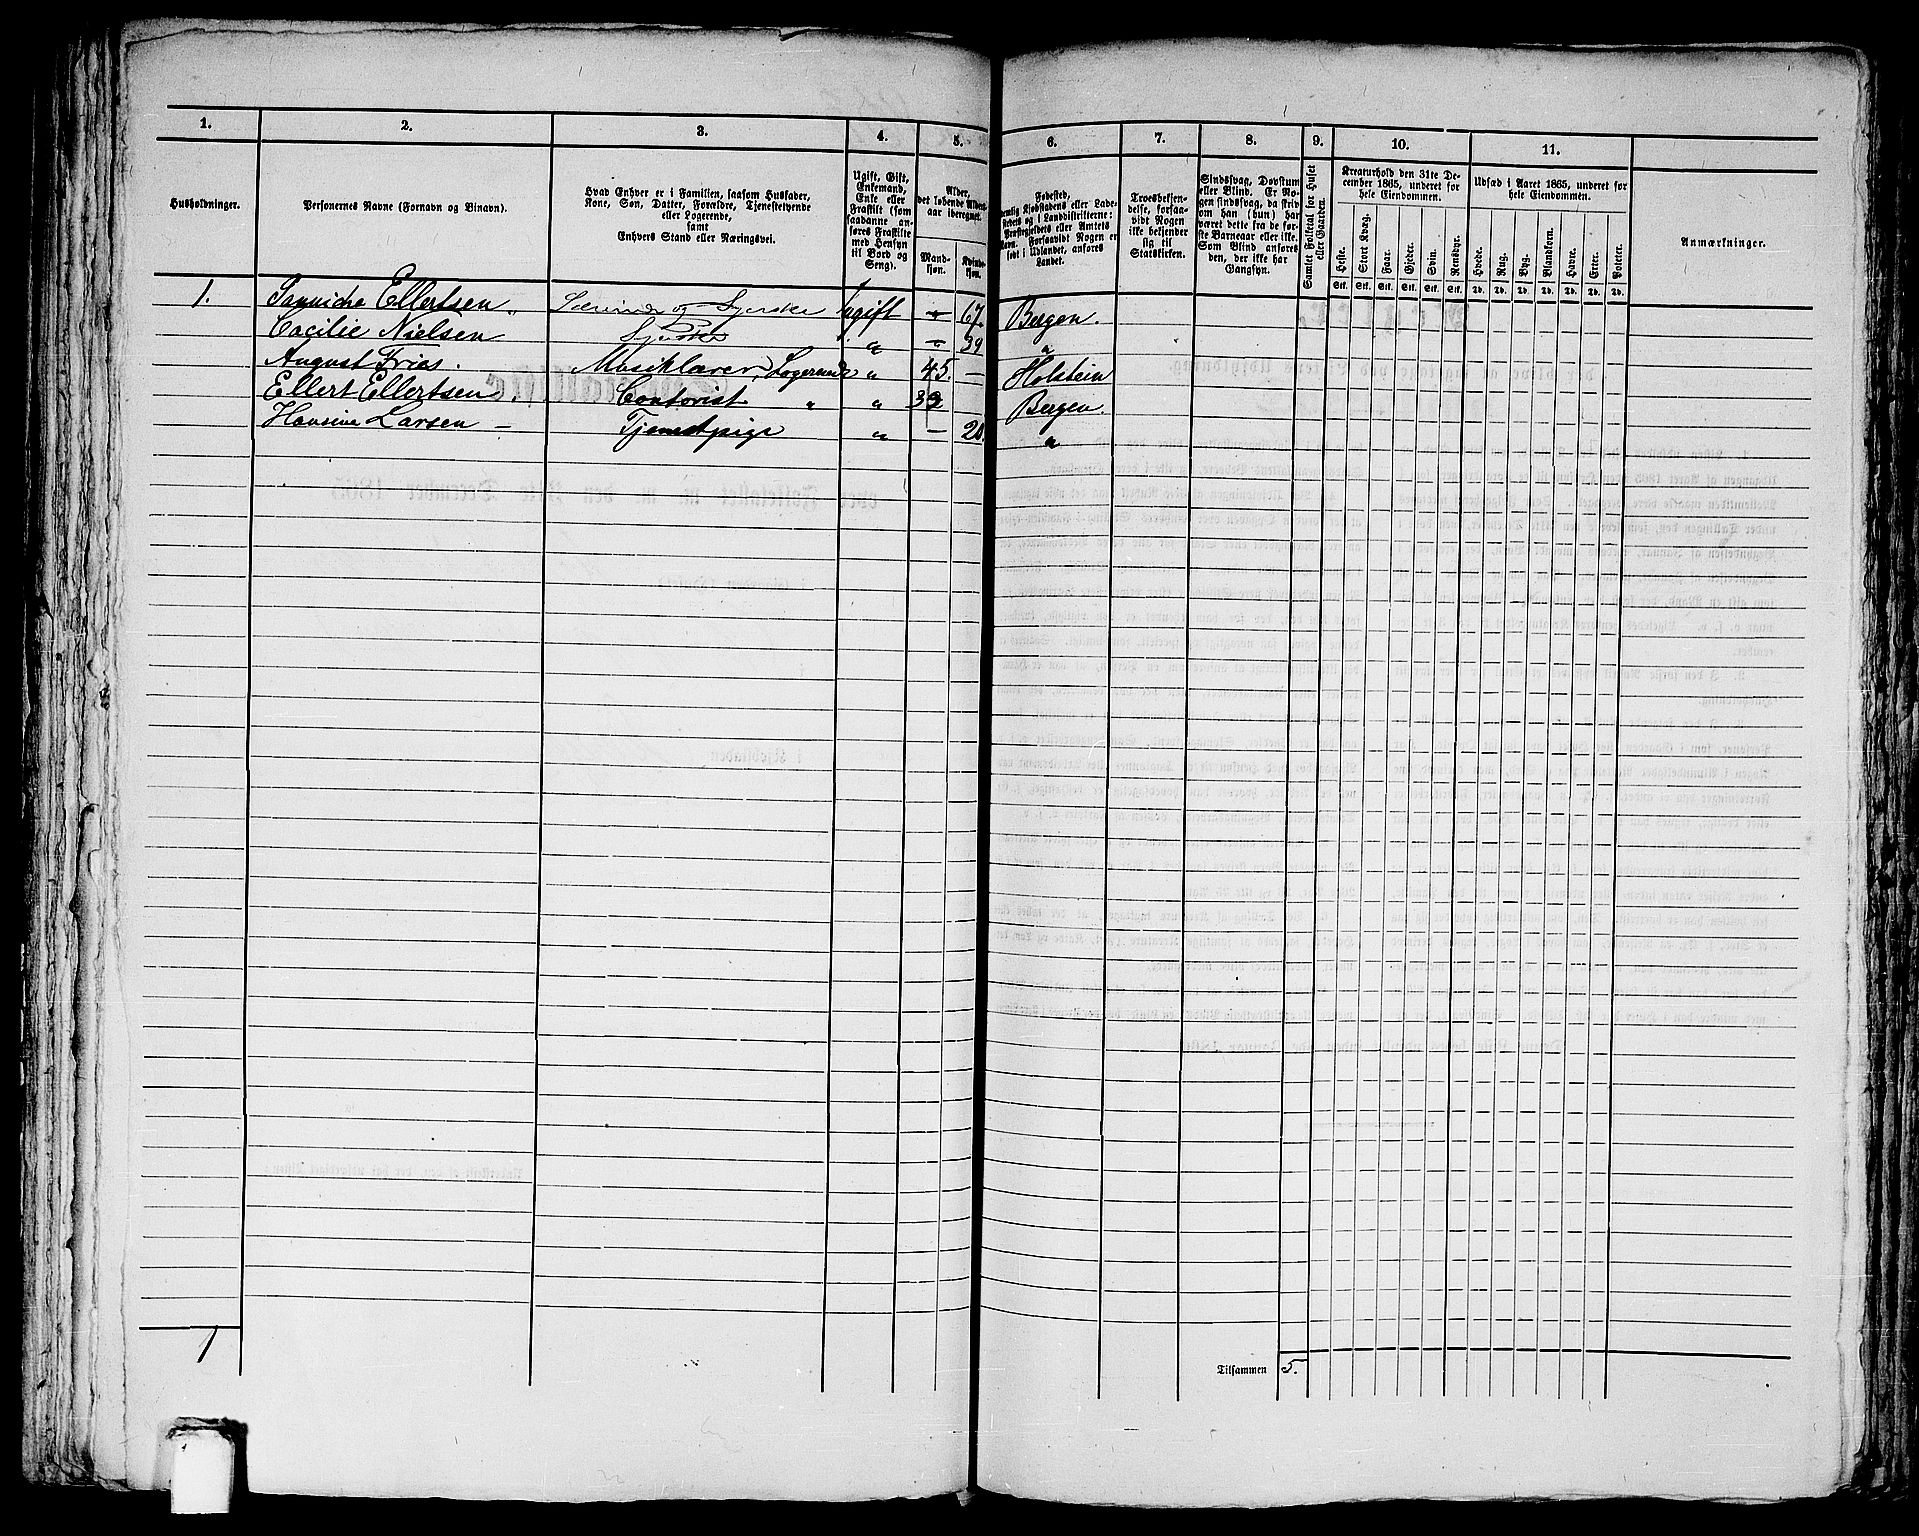 1. 2. 3. 4. 5. 6. 7. 8. 9. 10. 11.
Husholdninger.
Personernes Navne (Fornavn og Binavn).
Hvad Enhver er i Familien, saasom Husfader,
Kone, Søn, Datter, Forældre, Tjenestetyende
eller Logerende,
samt
Enhvers Stand eller Næringsvei.
Ugift, Gift,
Enkemand,
Enke eller
Fraskilt (som
saadanne an-
føres Fraskilte
med Hensyn
til Bord og
Seng).
Alder,
det løbende Alders-
aar iberegnet.
Mand-
kjøn.
Kvinde-
kjøn.
Fødested,
nemlig Kjøbstadens eller Lade-
stedets og i Landdistrikterne:
Præstegjeldets eller Amtets
Navn. Forsaavidt Nogen er
født i Udlandet, anføres
Landet.
Troesbekjen-
delse, forsaa-
vidt Nogen
ikke bekjender
sig til
Statskirken.
Sindssvag, Døvstum
eller Blind. Er No-
gen sindssvag, da skriv
om han (hun) har
været dette fra de før-
ste Barneaar eller ikke.
Som Blind anføres
den, der ikke har
Gangsyn.
Samlet Folketal for Huset
eller Gaarden.
Kreaturhold den 31te De-
cember 1865, underet for
hele Eiendommen.
Heste. Stort Kvæg. Faar. Gjeder. Svin. Rensdyr.
Stk. Stk. Stk. Stk. Stk. Stk.
Udsæd i Aaret 1865, underet for
hele Eiendommen.
Hvede. Rug. Byg. Blandkorn. Havre. Erter. Poteter.
Td. Td. Td. Td. Td. Td. Td.
Anmærkninger.
1. Ellertsen og Syerske Ugift " 67. Bergen.
Cecilie Nielsen Syerske " " 39 "
August Fries. Musiklærer, Logerende " 45. — Holstein
Ellert Ellertsen. Contorist " " 39 Bergen.
Hansine Larsen — Tjenestpige " — 20. "
1
Tilsammen 5.